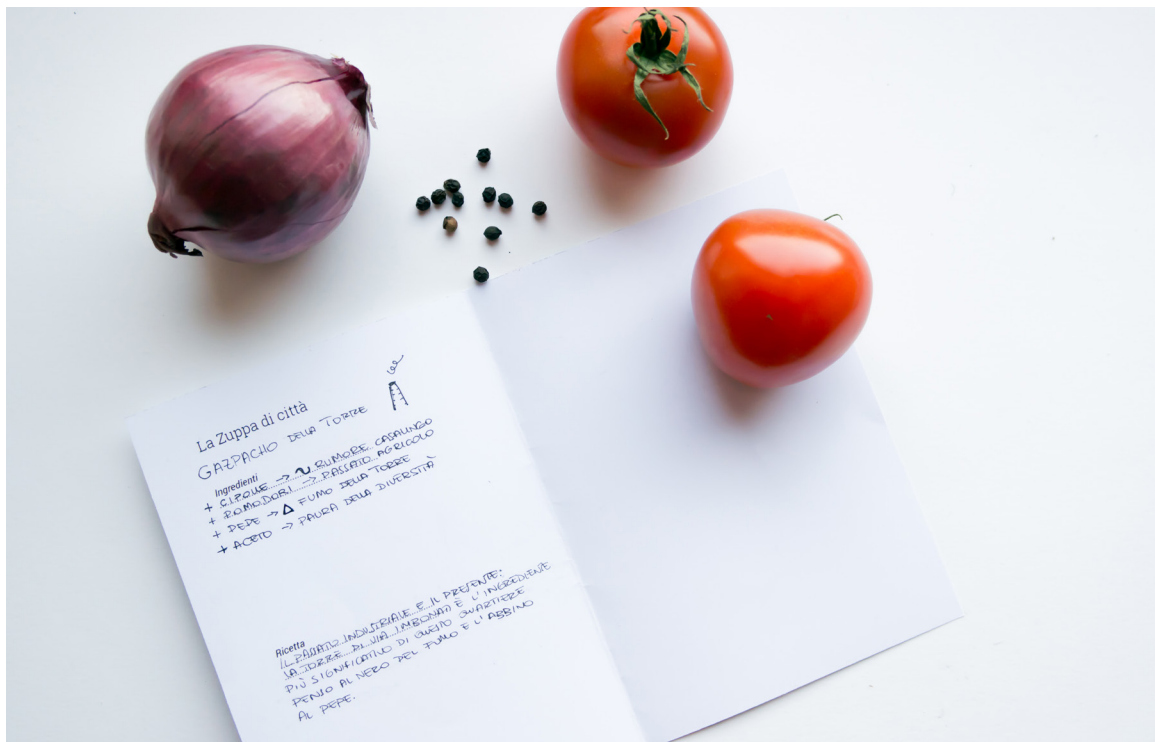 La Zuppa di città
GAZPACHO DELLA TORRE
Ingredienti
+ CIPOLLE -> RUMORE CASALINGO
+ POMODORI -> PASSATO AGRICOLO
+ PEPE -> FUMO DELLA TORRE
+ ACETO -> PAURA DELLA DIVERSITÀ
Ricetta
IL PASSATO INDUSTRIALE E IL PRESENTE:
LA TORRE DI VIA IMBONATI È L'INGREDIENTE
PIÙ SIGNIFICATIVO DI QUESTO QUARTIERE
PENSO AL NERO DEL FUMO E L'ABBINO
AL PEPE.